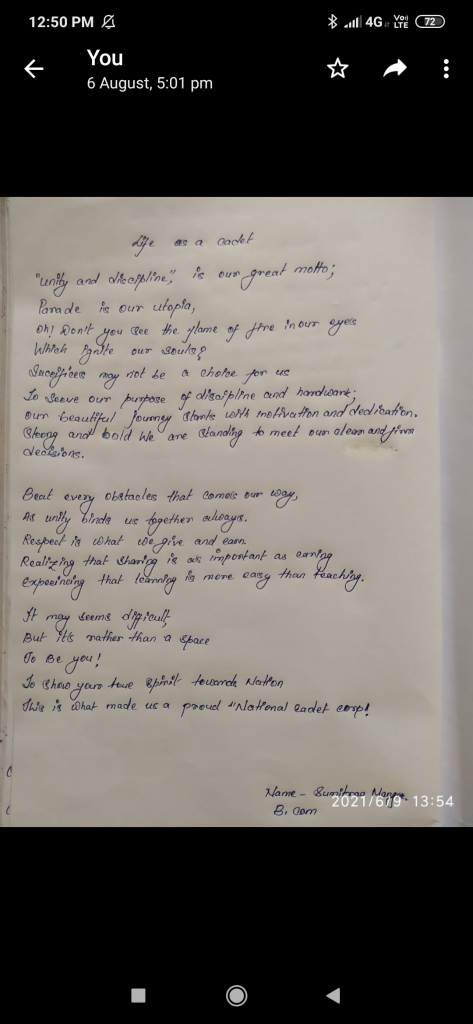 12:50 PM
4G
Vo))
LTE
72
You
6 August, 5:01 pm
Life as a cadet
"unity and discipline", is our great motto;
Parade is our utopia,
Oh! Don't you see the flame of fire in our eyes
Which ignite our souls?
Sacrifices may not be a choice for us
To serve our purpose of discipline and hardwork;
Our beautiful journey starts with motivation and dedication.
Strong and bold we are standing to meet our clean and firm
decisions.
Beat every obstacles that comes our way,
As unity binds us together always.
Respect is what we give and earn.
Realizing that sharing is as important as caring
Expeeincing that learning is more easy than teaching.
It may seems difficult
But it's rather than a space
To Be you!
To show your true spirit towards Nation
This is what made us a proud "National cadet corp!
Name - Sumitraa
2021/6/9 13:54
B. Com